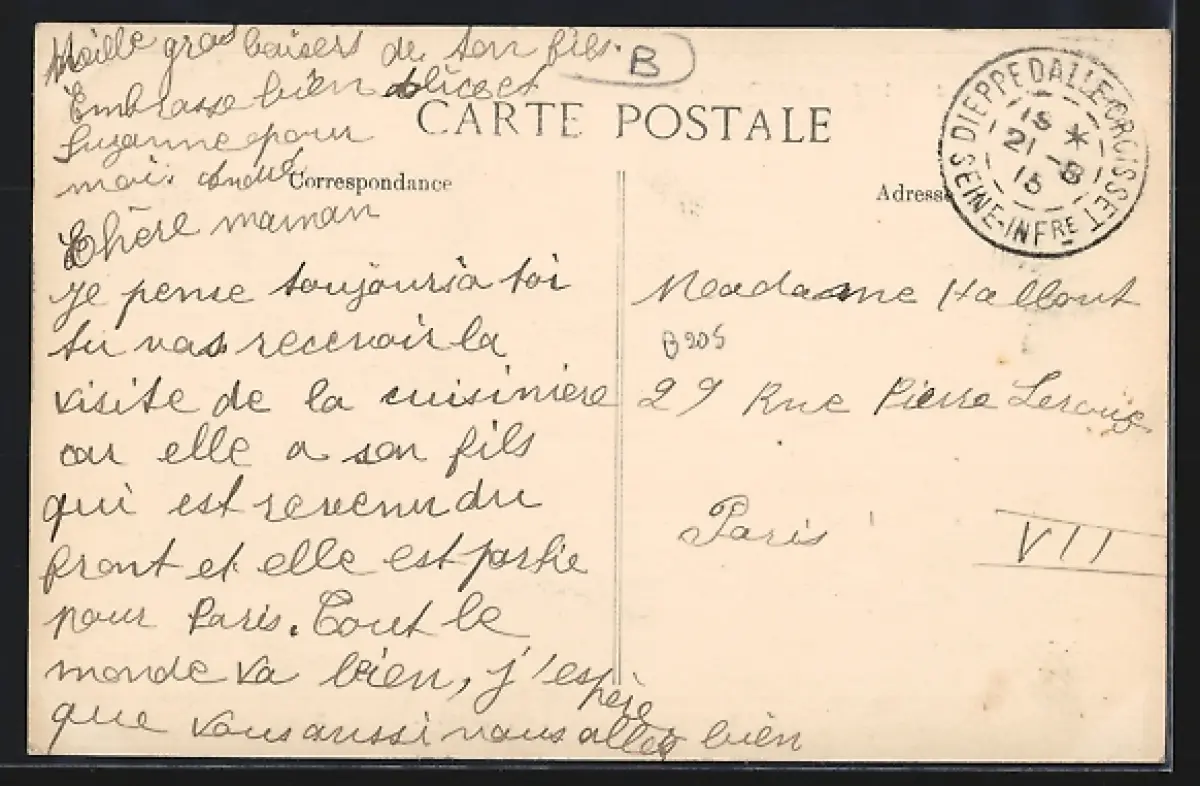 Mille gros baisers de ton fils.
Embrasse bien Alice et
Suzanne pour
moi. André
B
CARTE POSTALE
Correspondance
Adresse
DIEPPEDALLE-CROISSET
SEINE-INFRE
15 *
21 - 8
15
Chère maman
Je pense toujours à toi
tu vas recevoir la
visite de la cuisinière
car elle a son fils
qui est revenu du
front et elle est partie
pour Paris. Tout le
monde va bien, j'espère
que vous aussi vous allez bien
Madame Hallout
B205
29 Rue Pierre Leroux
Paris
VII